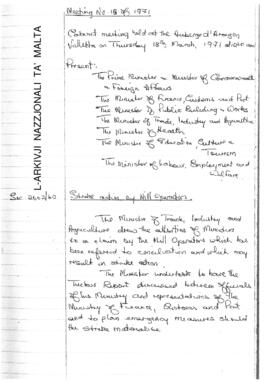 Meeting No 18 of 1971
Cabinet meeting held at the Auberge d'Aragon
Valletta on Thursday 18th March, 1971 at
Present:
The Prime Minister & Minister of Commonwealth
& Foreign Affairs
The Minister of Finance, Customs and Port
The Minister of Public Building & Works
The Minister of Trade, Industry and Agriculture
The Minister of Health
The Minister of Education Culture &
Tourism
The Minister of Labour, Employment and
Welfare
L-ARKIVJI NAZZJONALI TA' MALTA
Strike action by Mill Operators.
The Minister of Trade, Industry and
Agriculture drew the attention of Ministers
to a claim by the Mill Operators which has
been referred to conciliation and which may
result in strike action.
The Minister undertook to have the
Report discussed between officials
of his Ministry and representatives of the
Ministry of Finance, Customs and Port
and to plan emergency measures should
the strike materialise.